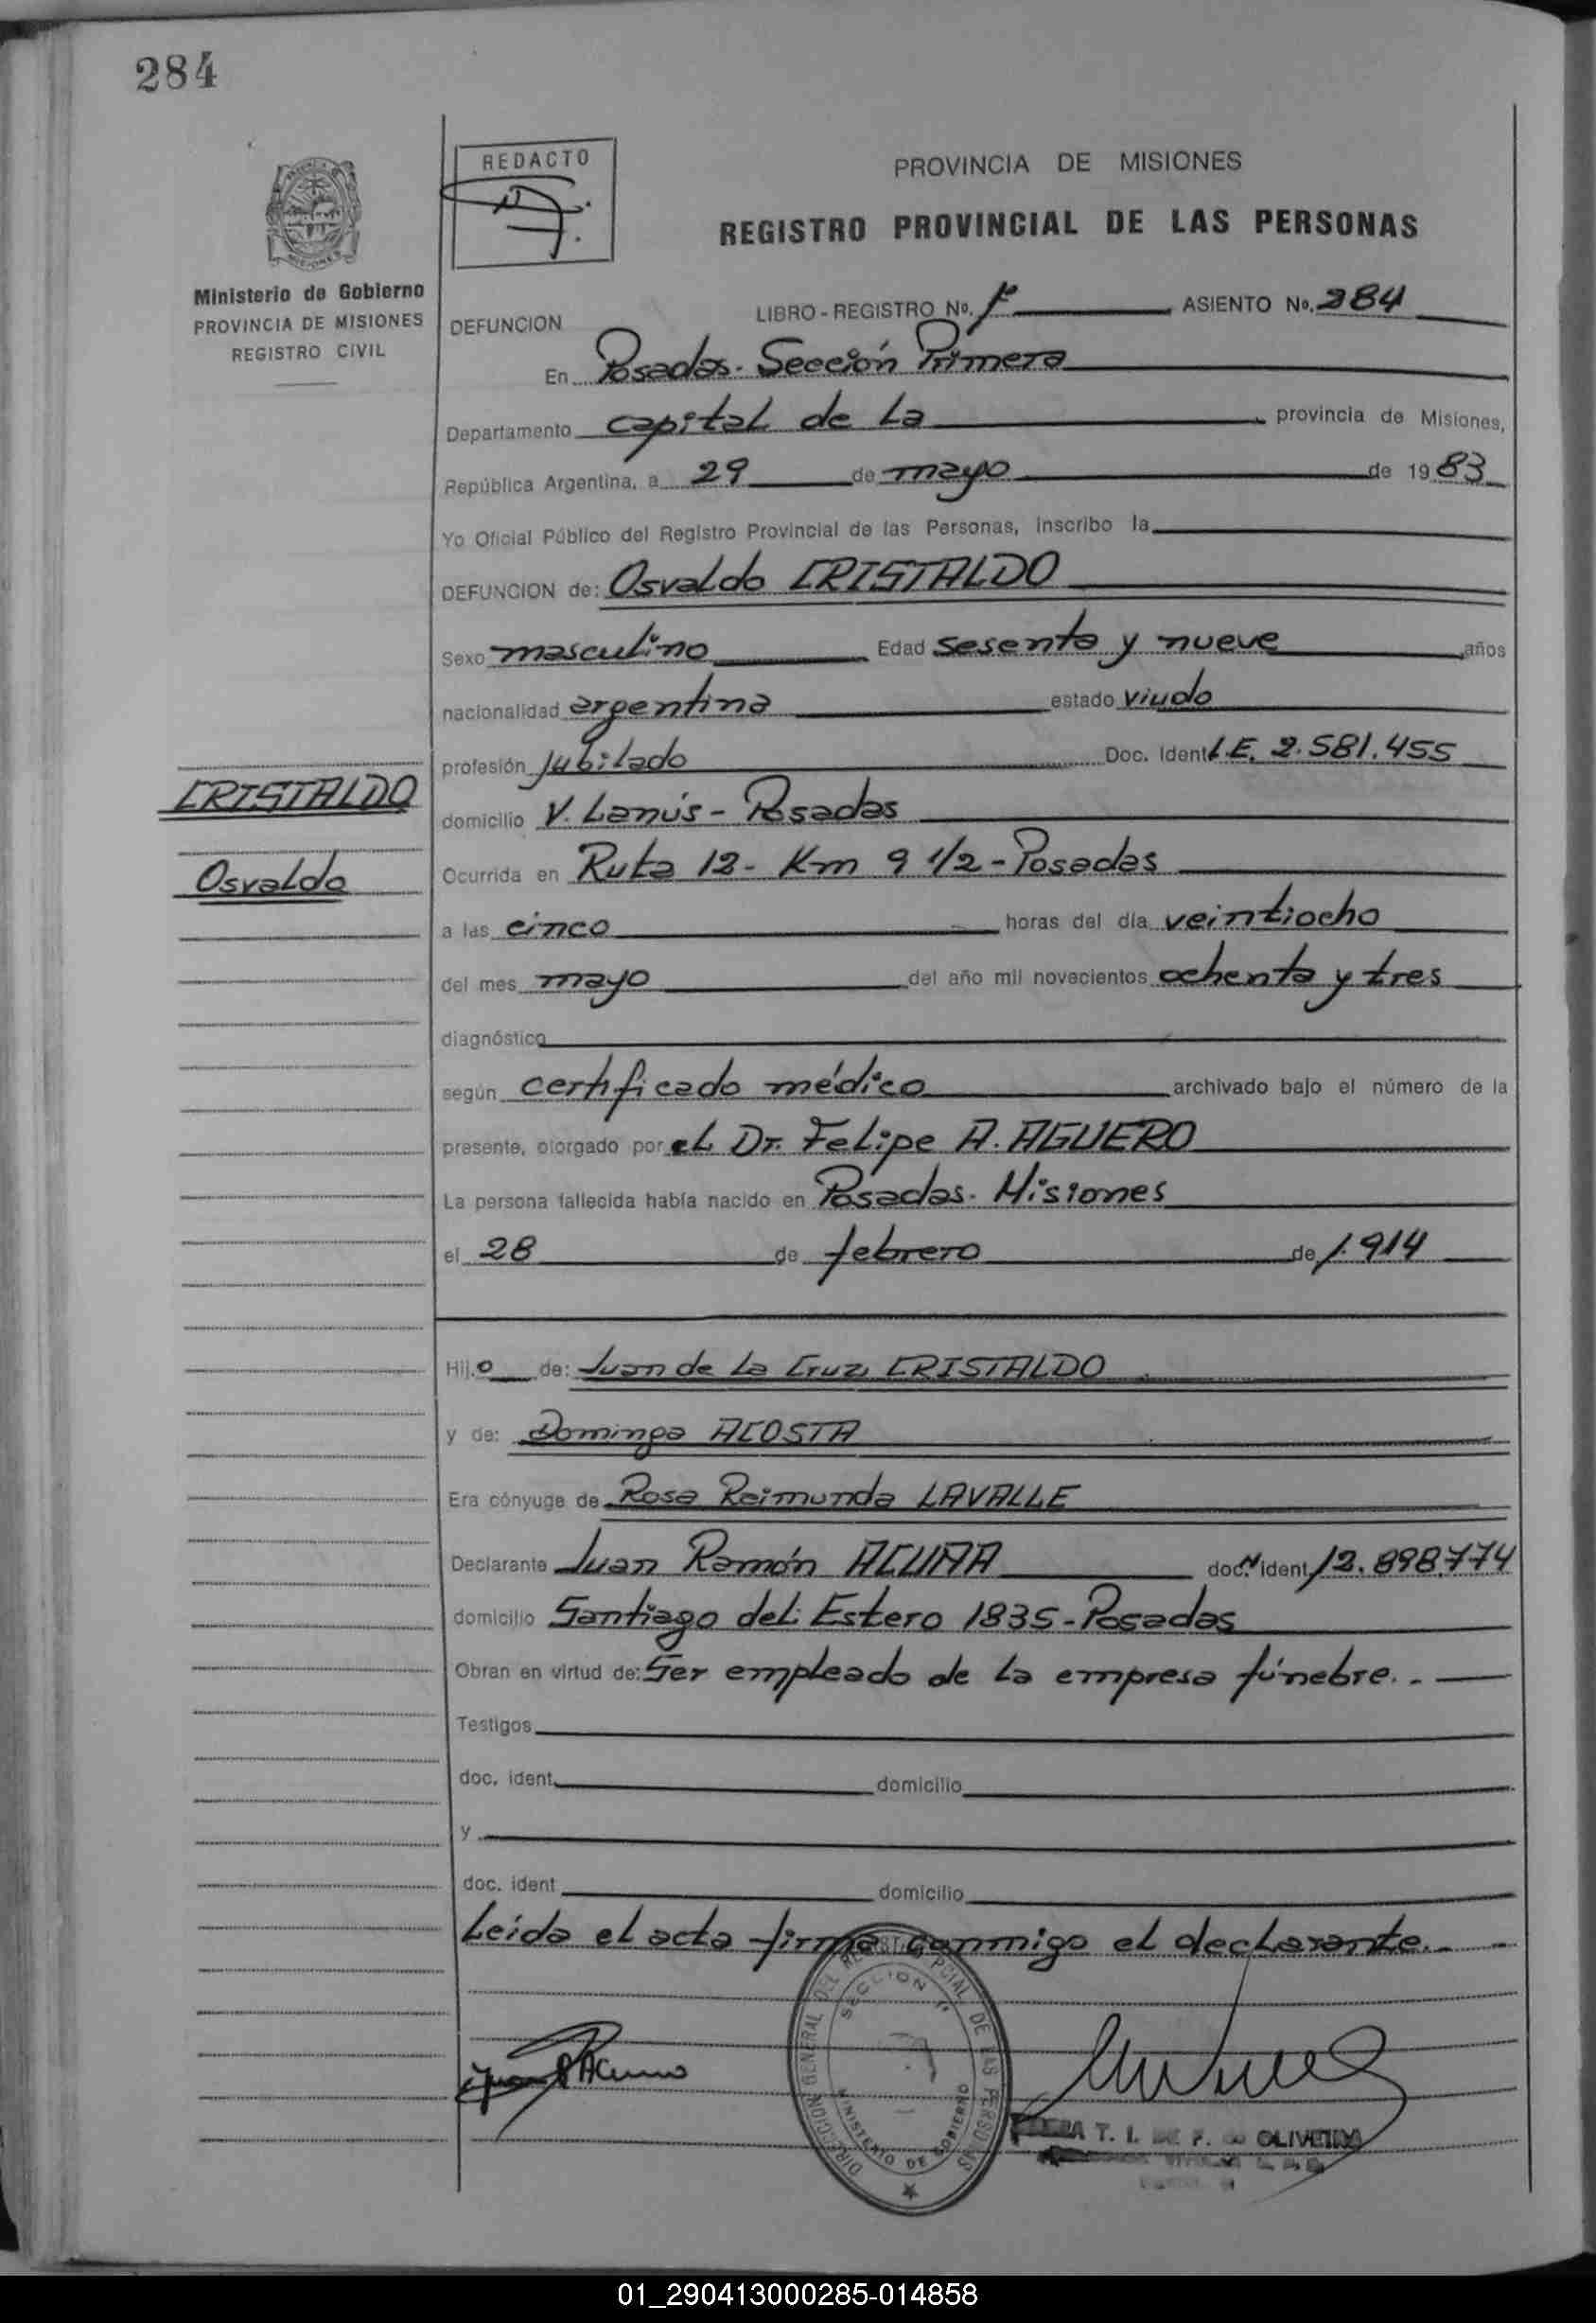 284
REDACTO
PROVINCIA DE MISIONES
REGISTRO PROVINCIAL DE LAS PERSONAS
MISIONES
Ministerio de Gobierno
PROVINCIA DE MISIONES
REGISTRO CIVIL
DEFUNCION LIBRO - REGISTRO No. 1º ASIENTO No. 284
En Posadas. Sección Primera
Departamento capital de la provincia de Misiones,
República Argentina, a 29 de mayo de 1983
Yo Oficial Público del Registro Provincial de las Personas, inscribo la
DEFUNCION de: Osvaldo CRISTALDO
Sexo masculino Edad sesenta y nueve años
nacionalidad argentina estado viudo
profesión jubilado Doc. Ident L.E. 2.581.455
CRISTALDO
domicilio V. Lanús - Posadas
Osvaldo
Ocurrida en Ruta 12 - Km 9 1/2 - Posadas
a las cinco horas del día veintiocho
del mes mayo del año mil novecientos ochenta y tres
diagnóstico
según certificado médico archivado bajo el número de la
presente, otorgado por el Dr. Felipe A. AGUERO
La persona fallecida había nacido en Posadas. Misiones
el 28 de febrero de 1.914
Hij.o de: Juan de la Cruz CRISTALDO
y de: Dominga ACOSTA
Era cónyuge de Rosa Reimunda LAVALLE
Declarante Juan Ramón ACUÑA doc. ident. 12.898.774
domicilio Santiago del Estero 1835 - Posadas
Obran en virtud de: Ser empleado de la empresa fúnebre. . -
Testigos
doc. ident. domicilio
y
doc. ident domicilio
Leída el acta firma conmigo el declarante. - -
DIRECCION GENERAL DEL REGISTRO PCIAL DE LAS PERSONAS
SECCION 1ª
MINISTERIO DE GOBIERNO
T. I. DE F. DE OLIVEIRA
01_290413000285-014858